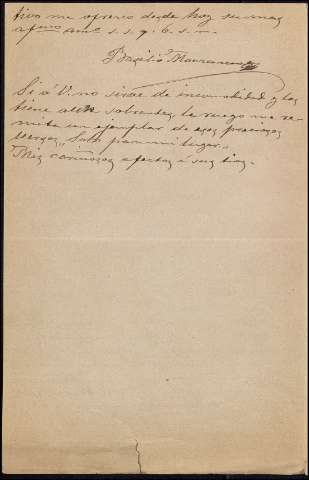 tivo me ofrezco desde hoy su mas
afmo amo s. s. q. b. s. m.
Basilio
Si á V. no sirve de incomodidad y los
tiene ahí sobrantes, le ruego me re-
mita un ejemplar de esos preciosos
versos, "Solo para mi lugar".
Mis cariñosos afectos á sus tias.